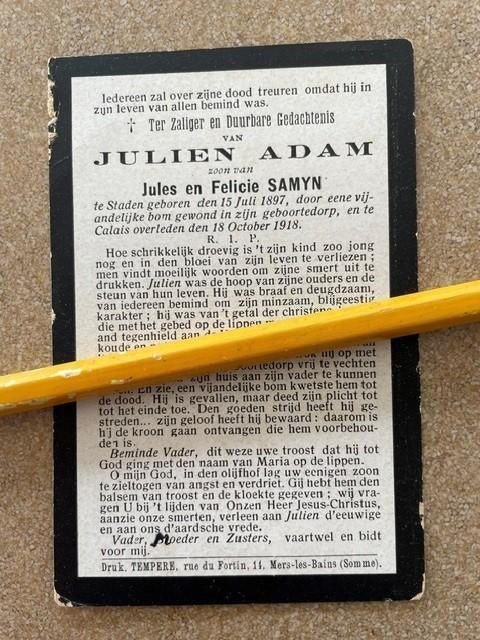 Iedereen zal over zijne dood treuren omdat hij in
zijn leven van allen bemind was.
† Ter Zaliger en Duurbare Gedachtenis
VAN
JULIEN ADAM
zoon van
Jules en Felicie SAMYN
te Staden geboren den 15 Juli 1897, door eene vij-
andelijke bom gewond in zijn geboortedorp, en te
Calais overleden den 18 October 1918.
R. I. P.
Hoe schrikkelijk droevig is 't zijn kind zoo jong
nog en in den bloei van zijn leven te verliezen ;
men vindt moeilijk woorden om zijne smert uit te
drukken. Julien was de hoop van zijne ouders en de
steun van hun leven. Hij was braaf en deugdzaam,
van iedereen bemind om zijn minzaam, blijgeestig
karakter ; hij was van 't getal der christene
die met het gebed op de lippen
and tegenhield aan de
koude en
hij op met
geboortedorp vrij te vechten
zijn huis aan zijn vader te kunnen
En zie, een vijandelijke bom kwetste hem tot
de dood. Hij is gevallen, maar deed zijn plicht tot
tot het einde toe. Den goeden strijd heeft hij ge-
streden... zijn geloof heeft hij bewaard : daarom is
hij de kroon gaan ontvangen die hem voorbehou-
den is.
Beminde Vader, dit weze uwe troost dat hij tot
God ging met den naam van Maria op de lippen.
O mijn God, in den olijfhof lag uw eenigen zoon
te zieltogen van angst en verdriet. Gij hebt hem den
balsem van troost en de kloekte gegeven ; wij vra-
gen U bij 't lijden van Onzen Heer Jesus-Christus,
aanzie onze smerten, verleen aan Julien d'eeuwige
en aan ons d'aardsche vrede.
Vader, Moeder en Zusters, vaartwel en bidt
voor mij.
Druk. TEMPERE, rue du Fortin, 14, Mers-les-Bains (Somme).